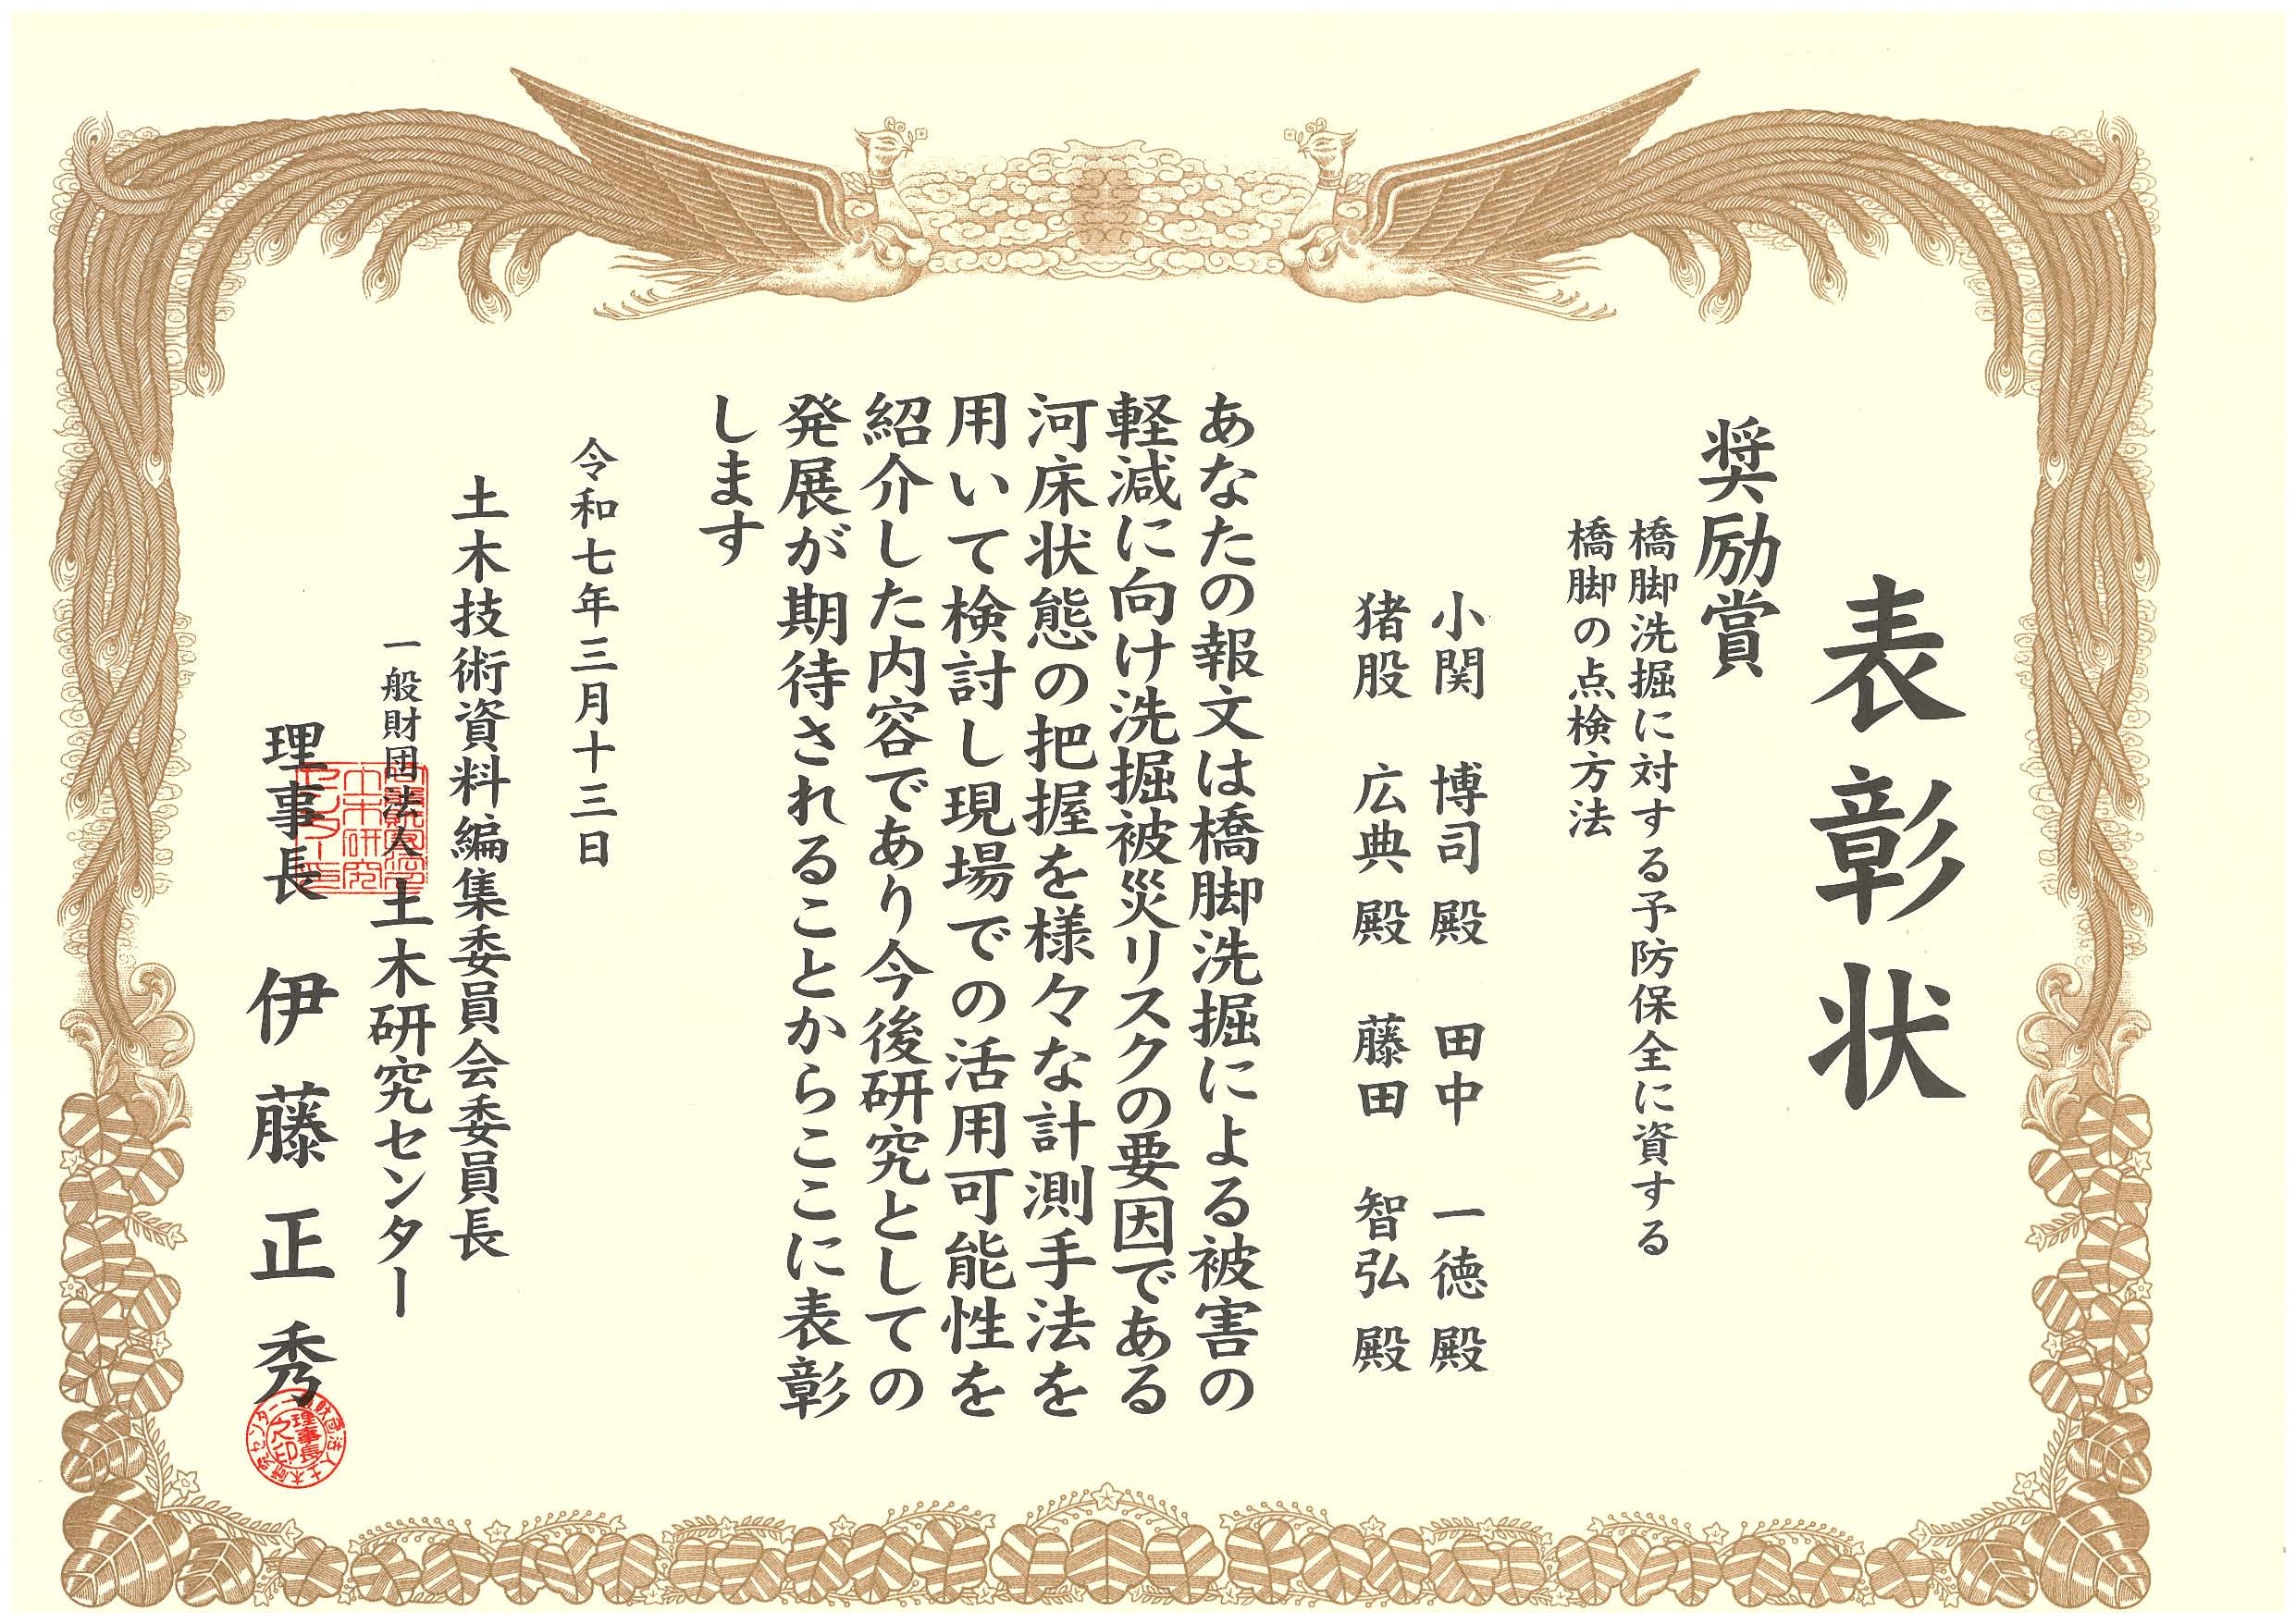 表彰状
奨励賞
橋脚洗掘に対する予防保全に資する
橋脚の点検方法
小関 博司 殿 田中 一徳 殿
猪股 広典 殿 藤田 智弘 殿
あなたの報文は橋脚洗掘による被害の
軽減に向け洗掘被災リスクの要因である
河床状態の把握を様々な計測手法を
用いて検討し現場での活用可能性を
紹介した内容であり今後研究としての
発展が期待されることからここに表彰
します
令和七年三月十三日
土木技術資料編集委員会委員長
一般財団法人 土木研究センター
理事長 伊藤正秀
理事長
之印